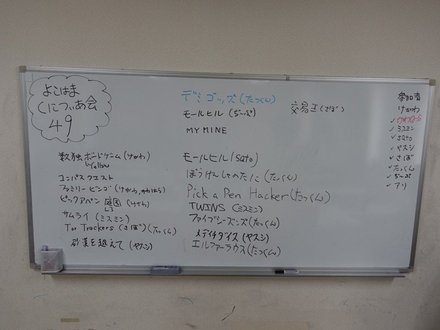 よこはま
くにつぃあ会
49
数独ボードゲーム(けがわ)
↳Yellow
コンパスクエスト
ファミリービンゴ(けがわ、
ピックアペン
サムライ(ミスミン)
Tor Truckers(さぼ)(たっくん)
砂漠を越えて(ヤスシ)
デミゴッズ(たっくん)
モールヒル(ぢーぷ)
MY MINE
モールヒル(sato)
ぼうけんしゃのへたに(たっくん)
Pick a Pen Hacker(たっくん)
TWINS(ミスミン)
ファイブシーズンズ(たっくん)
メディチダイス(ヤスシ)
エルファーラウス(たっくん)
交易王(さぼ)
参加者
けがわ
✓ミスミン
✓sato
✓ヤスシ
✓さぼ
✓たっくん
✓ぢーぷ
✓アリ